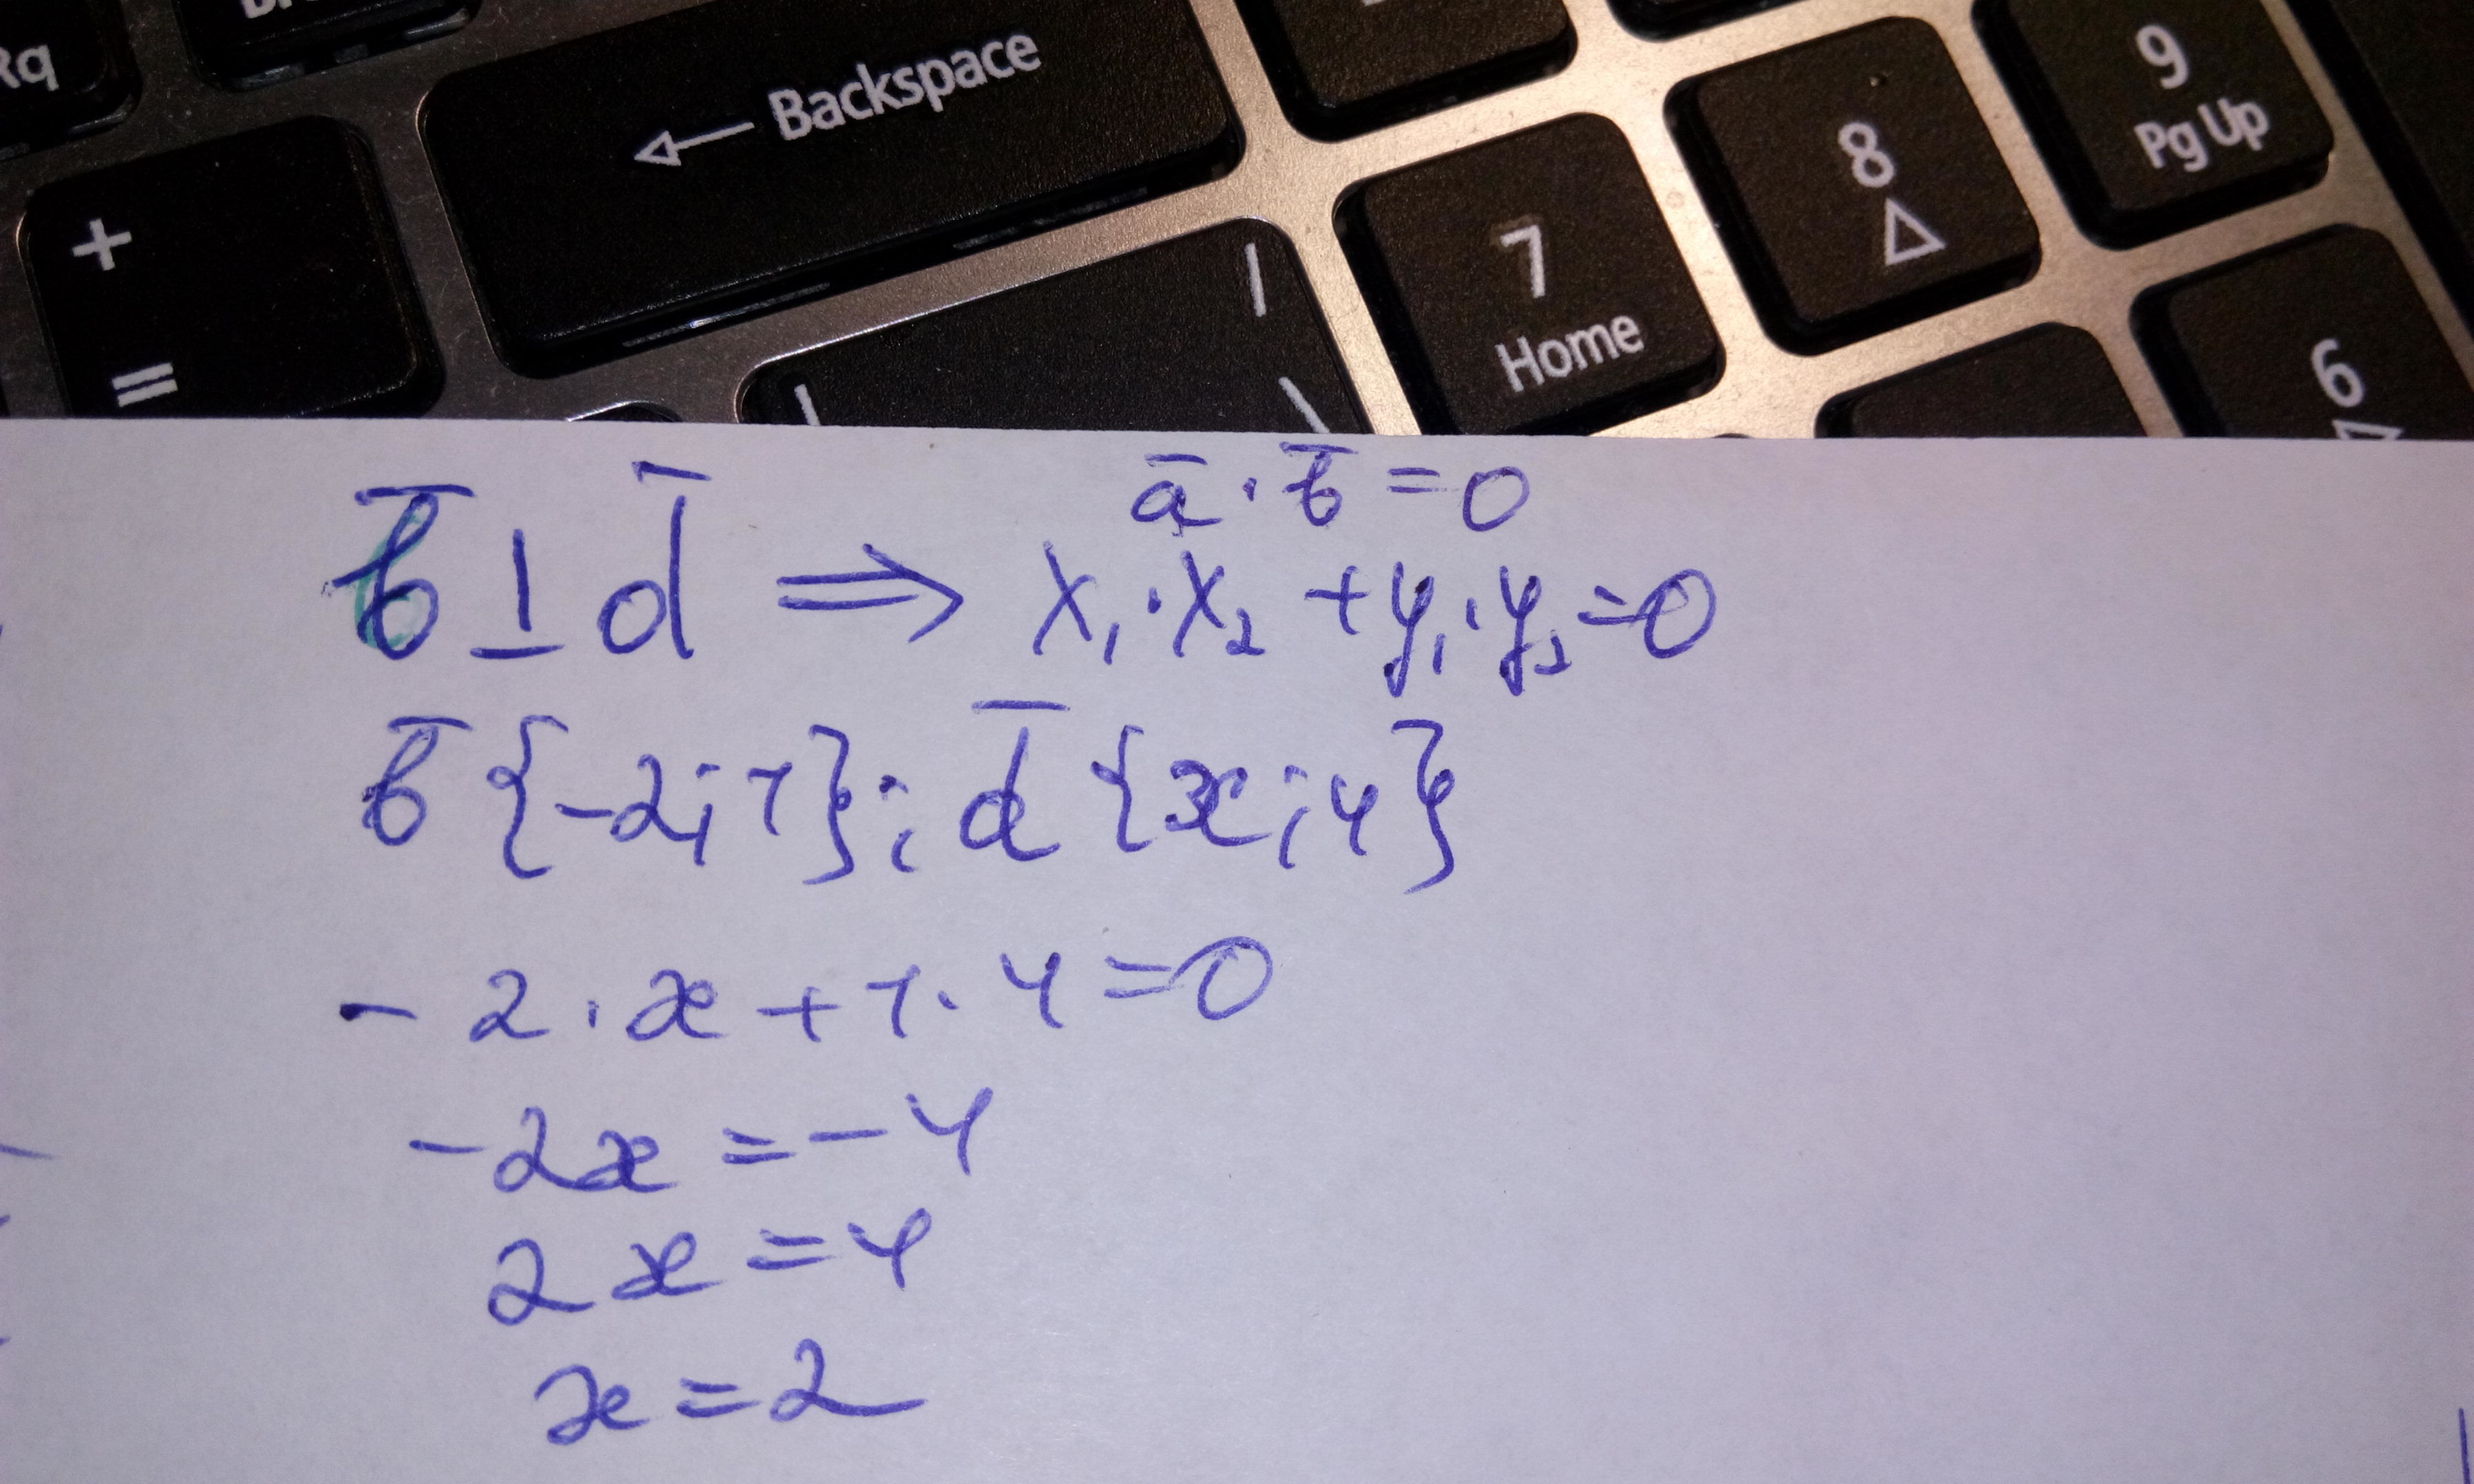 Rq
← Backspace
9
Pg Up
8
+
=
7
Home
6
|
/
\
ā · b̄ = 0
b̄ ⊥ d̄ ⇒ x₁ · x₂ + y₁ · y₂ = 0
b̄ {-2; 1}; d̄ {x; 4}
- 2 · x + 1 · 4 = 0
-2x = -4
2x = 4
x = 2